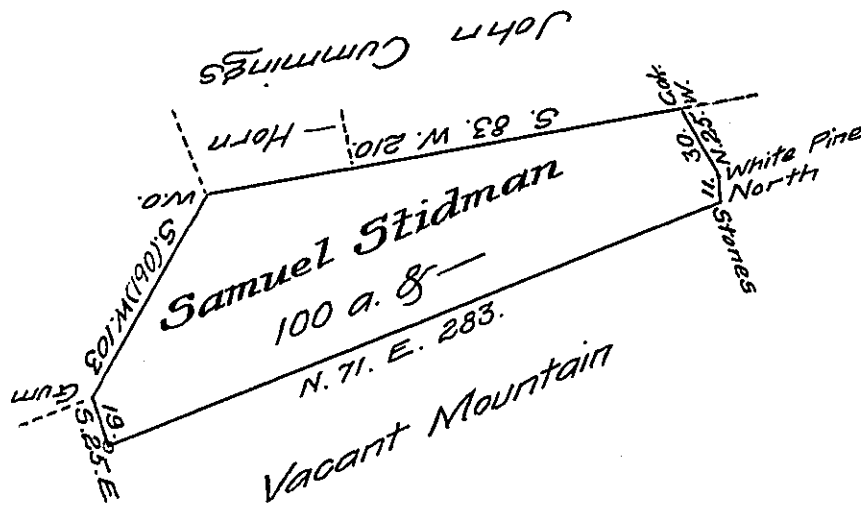 John Cummings
— Horn
S. 83. W. 210.
N.25.W.
30.
White Pine
North
11
Stones
W.O.
S.(061)W.103
Samuel Stidman
100 a. & —
N. 71. E. 283.
Gum
19.
S.25.E
Vacant Mountain